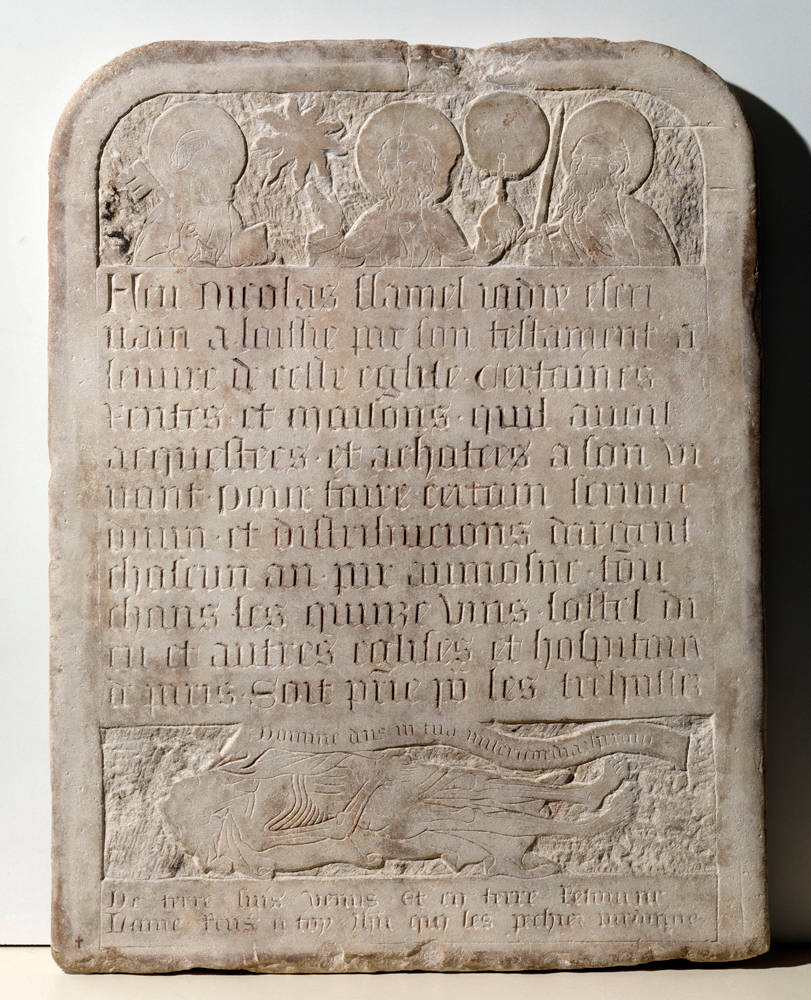 Feu Nicolas flamel iadiz escri
uain a laissie par son testament a
leuure de ceste eglise · Certaines
rentes · et maisons · quil auoit
acquestees · et achatees a son vi
uant · pour faire · certain seruice
diuin · et distribucions dargent
chascun an · par aumosne · tou
chans les quinze vins · lostel di
eu et autres eglises et hospitaux
de paris · Soit prie pō les trespassez
Domine dns in tua misericordia speraui
De terre suis venus et en terre retourne
Lame rens a toy Jhu qui les pechiez pardonne